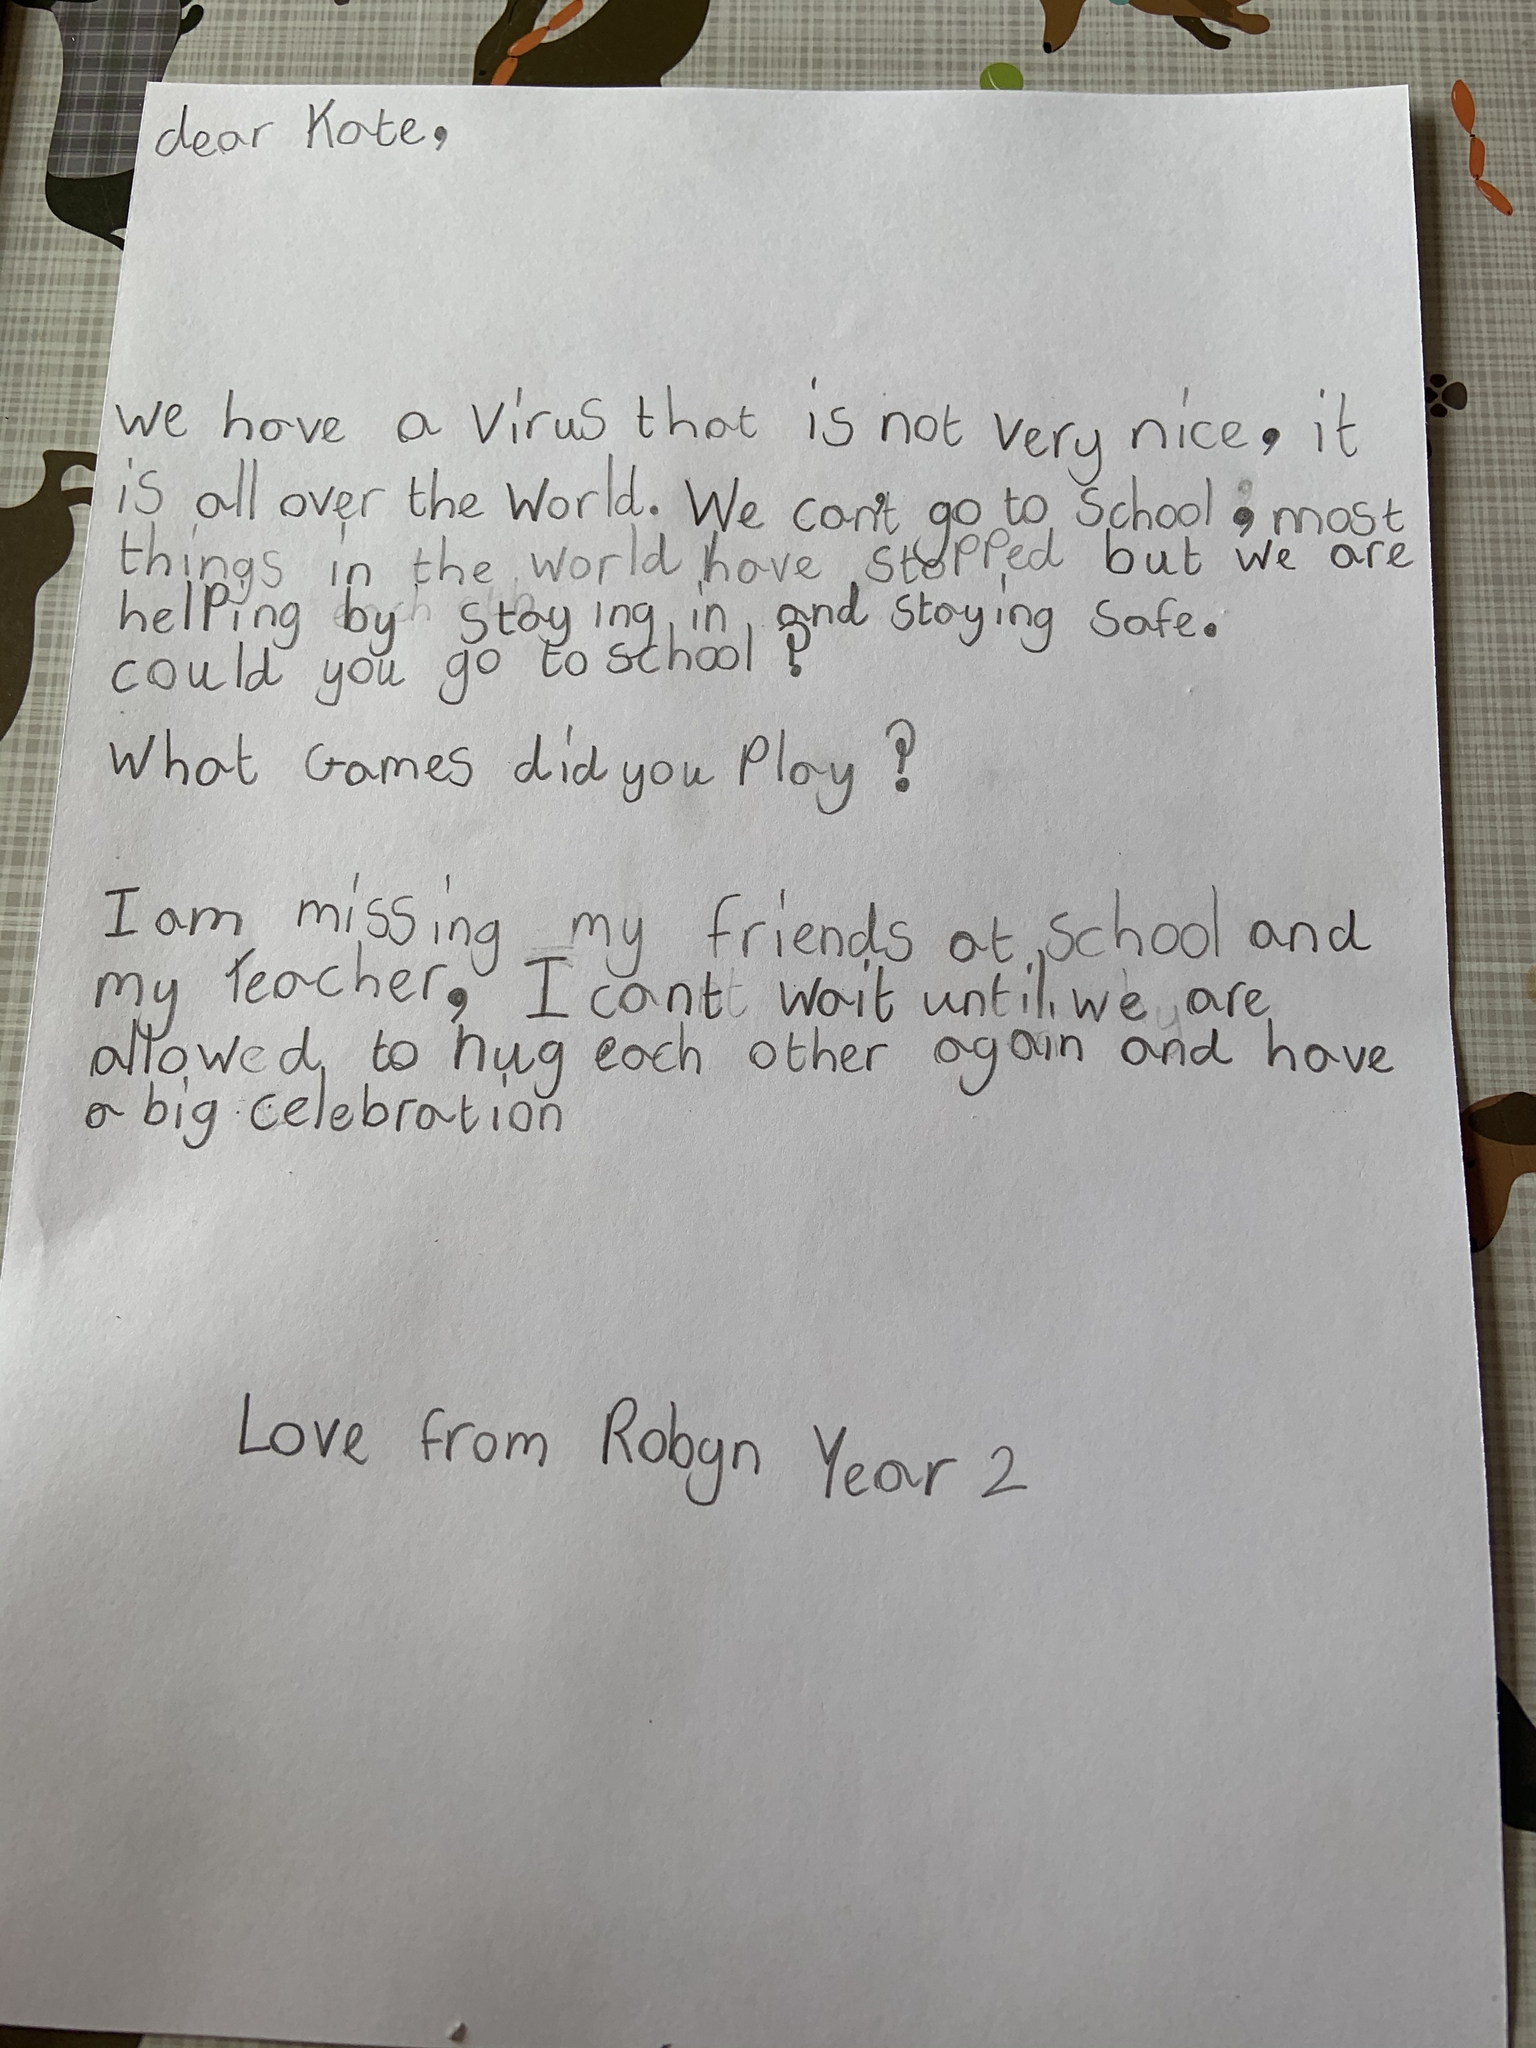 dear Kate,
we have a Virus that is not very nice, it
is all over the World. We can't go to School, most
things in the world have stopped but we are
helping by staying in and staying safe.
could you go to school?
What Games did you Play?
I am missing my friends at school and
my teacher, I cant wait until we are
allowed to hug each other again and have
a big celebration
Love from Robyn Year 2